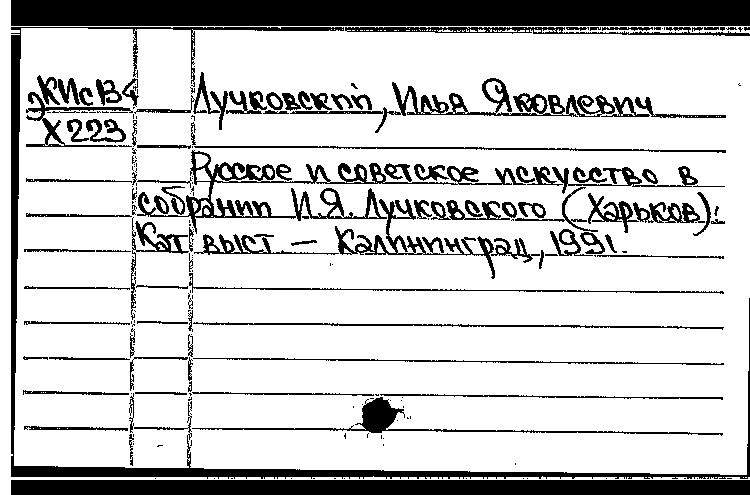 Лучковский, Илья Яковлевич
Х223
Русское и советское искусство в
собрании И.Я. Лучковского (Харьков):
Кат выст. — Калининград, 1991.